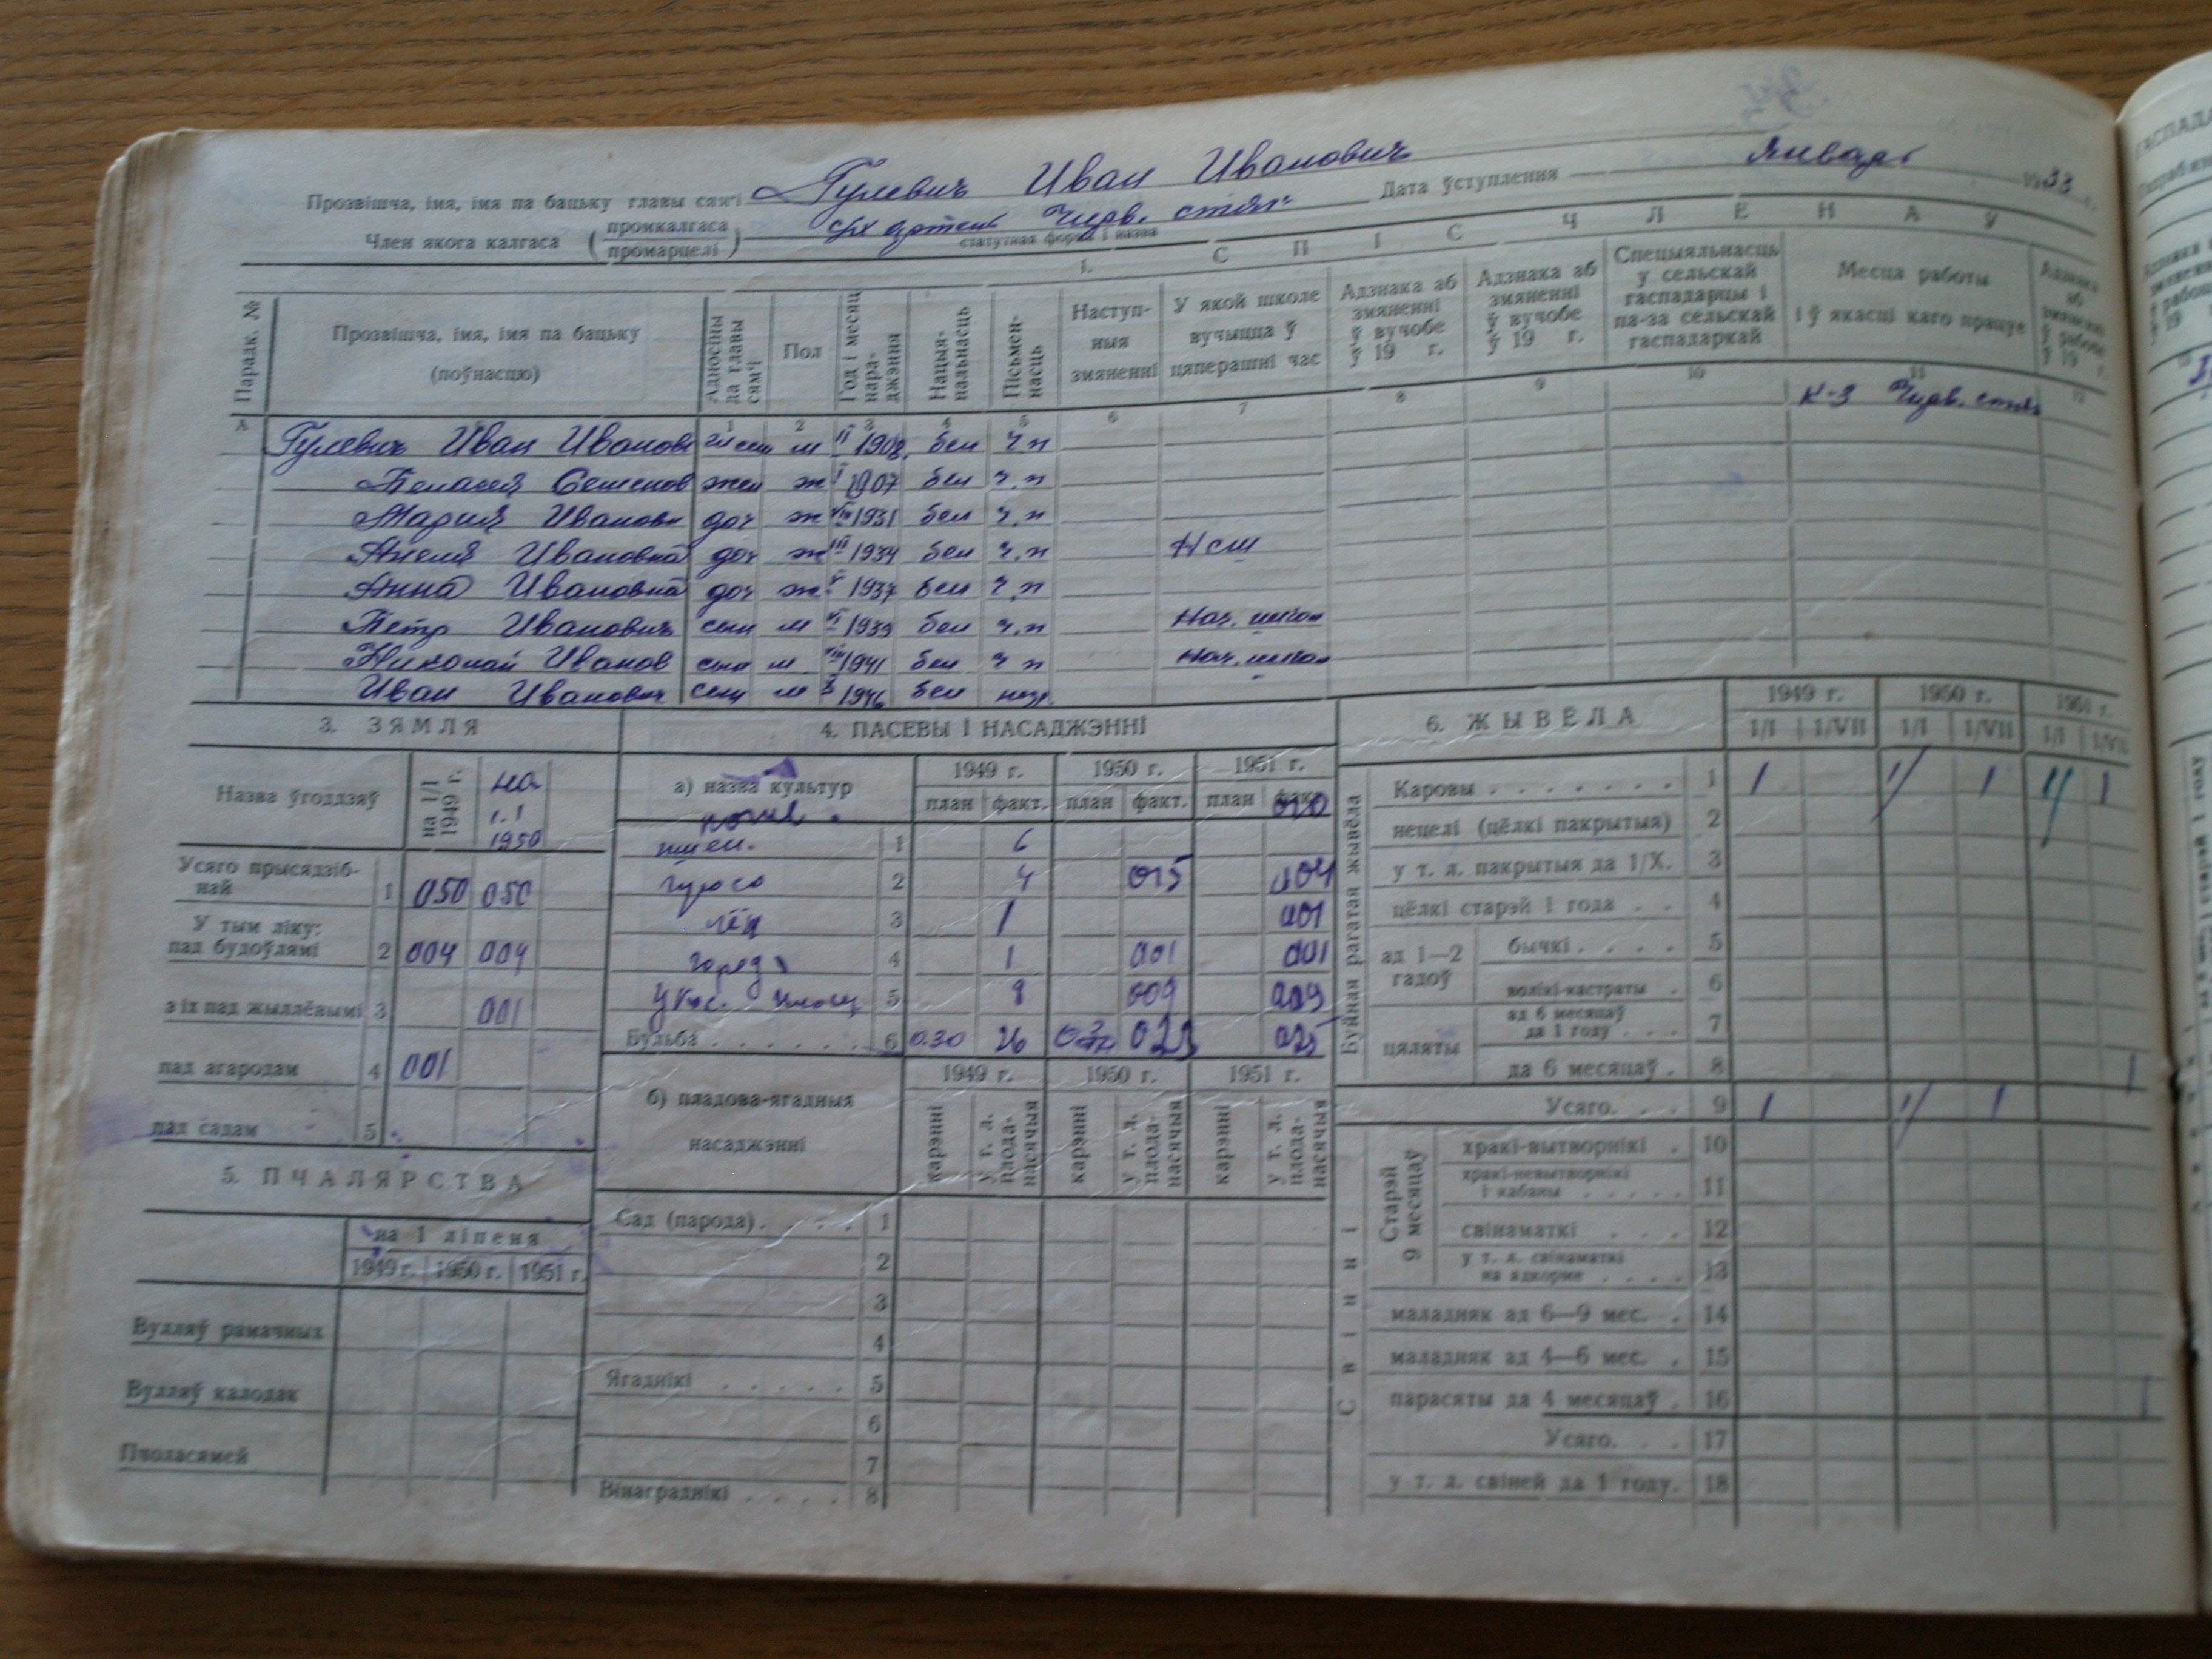 Прозвішча, імя, імя па бацьку главы сям'і Гулевич Иван Иванович Дата ўступлення январь 1933 г.
Член якога калгаса (промкалгаса промарцелі) с/х артель Чирв. стяг
статутная форма і назва
1. СПІС ЧЛЕНАУ
Парадк. № Прозвішча, імя, імя па бацьку (поўнасцю) Адносіны да главы сям'і Пол Год і месяц нараджэння Нацыянальнасць Пісьменнасць Наступныя змяненні У якой школе вучыцца ў цяперашні час Адзнака аб змяненні ў вучобе ў 19 г. Адзнака аб змяненні ў вучобе ў 19 г. Спецыяльнасць у сельскай гаспадарцы і па-за сельскай гаспадаркай Месца работы і ў якасці каго працуе Адзнака аб змяненні ў рабоце ў 19 г.
А 1 2 3 4 5 6 7 8 9 10 11 12
Гулевич Иван Иванов гл сем м II 1908 бел ч.п К-з Чирв. стяг
Пелагея Семенов жен ж I 1907 бел ч.п
Мария Ивановн доч ж VIII 1931 бел ч.п
Анеля Ивановна доч ж III 1934 бел ч.п Нсш
Анна Ивановна доч ж V 1937 бел ч.п
Петр Иванович сын м VI 1939 бел ч.п Нач. школ
Николай Иванов сын м VIII 1941 бел ч п Нач. школ
Иван Иванович сын м X 1946 бел негр.
3. ЗЯМЛЯ
Назва ўгоддзяў на 1/I 1949 г. на 1.1 1950
Усяго прысядзібнай 1 050 050
У тым ліку: пад будоўлямі 2 004 004
з іх пад жыллёвымі 3 001
пад агародам 4 001
пад садам 5
5. ПЧАЛЯРСТВА
на 1 ліпеня
1949 г. 1950 г. 1951 г.
Вулляў рамачных
Вулляў калодак
Пчоласямей
4. ПАСЕВЫ І НАСАДЖЭННІ
а) назва культур 1949 г. 1950 г. 1951 г.
план факт. план факт. план факт.
010
пшен. 1 6
2 4 015 004
лён 3 1 001
город 4 1 001 001
5 9 009 009
Бульба 6 0.30 26 025 025
б) пладова-ягадныя насаджэнні 1949 г. 1950 г. 1951 г.
карэнні у т. л. плоданасячыя карэнні у т. л. плоданасячыя карэнні у т. л. плоданасячыя
Сад (парода) 1
2
3
4
Ягаднікі 5
6
7
Вінаграднікі 8
6. ЖЫВЁЛА 1949 г. 1950 г. 1951 г.
1/I 1/VII 1/I 1/VII 1/I 1/VII
Буйная рагатая жывёла
Каровы 1 1 1 1 1 1
нецелі (цёлкі пакрытыя) 2
у т. л. пакрытыя да 1/X. 3
цёлкі старэй 1 года 4
ад 1—2 гадоў бычкі 5
волікі-кастраты 6
цяляты ад 6 месяцаў да 1 году 7
да 6 месяцаў 8 1
Усяго 9 1 1 1
Свінні
Старэй 9 месяцаў хракі-вытворнікі 10
хракі-невытворнікі і кабаны 11
свінаматкі 12
у т. л. свінаматкі на адкорме 13
маладняк ад 6—9 мес. 14
маладняк ад 4—6 мес. 15
парасяты да 4 месяцаў 16 1
Усяго 17
у т. л. свіней да 1 году. 18